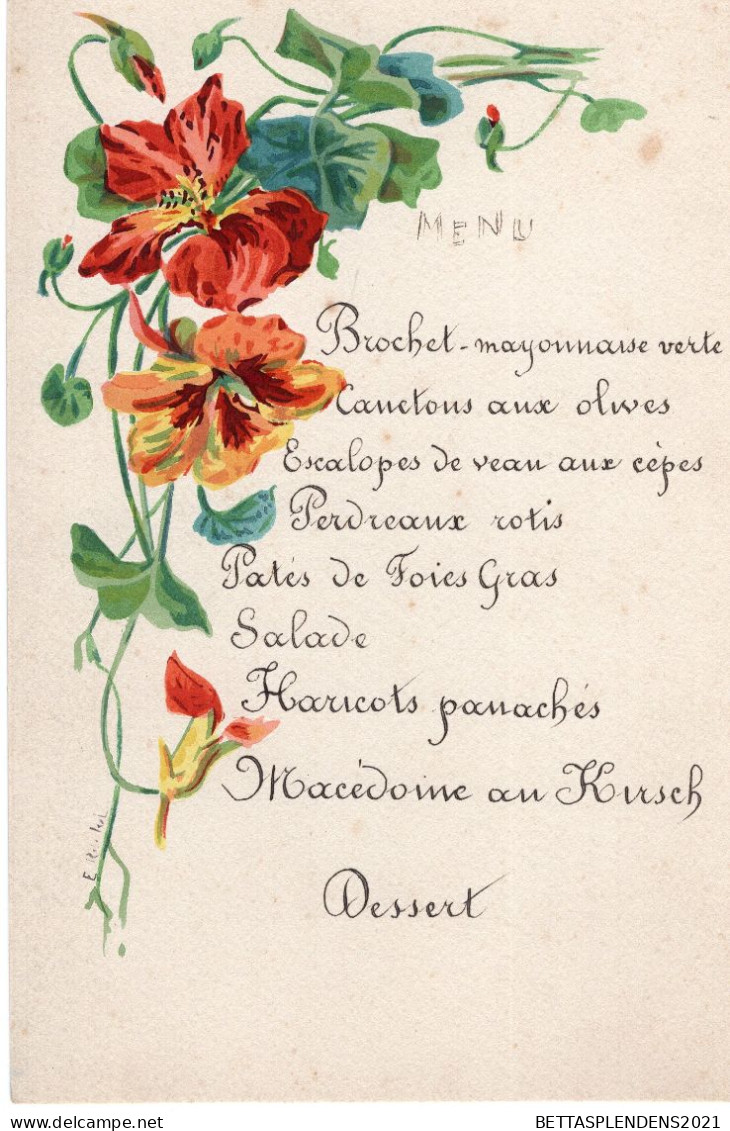 MENU
Brochet-mayonnaise verte
Canetons aux olives
Escalopes de veau aux cépes
Perdreaux rotis
Patés de Foies Gras
Salade
Haricots panachés
Macédoine au Kirsch
Dessert
BETTASPLENDENS2021